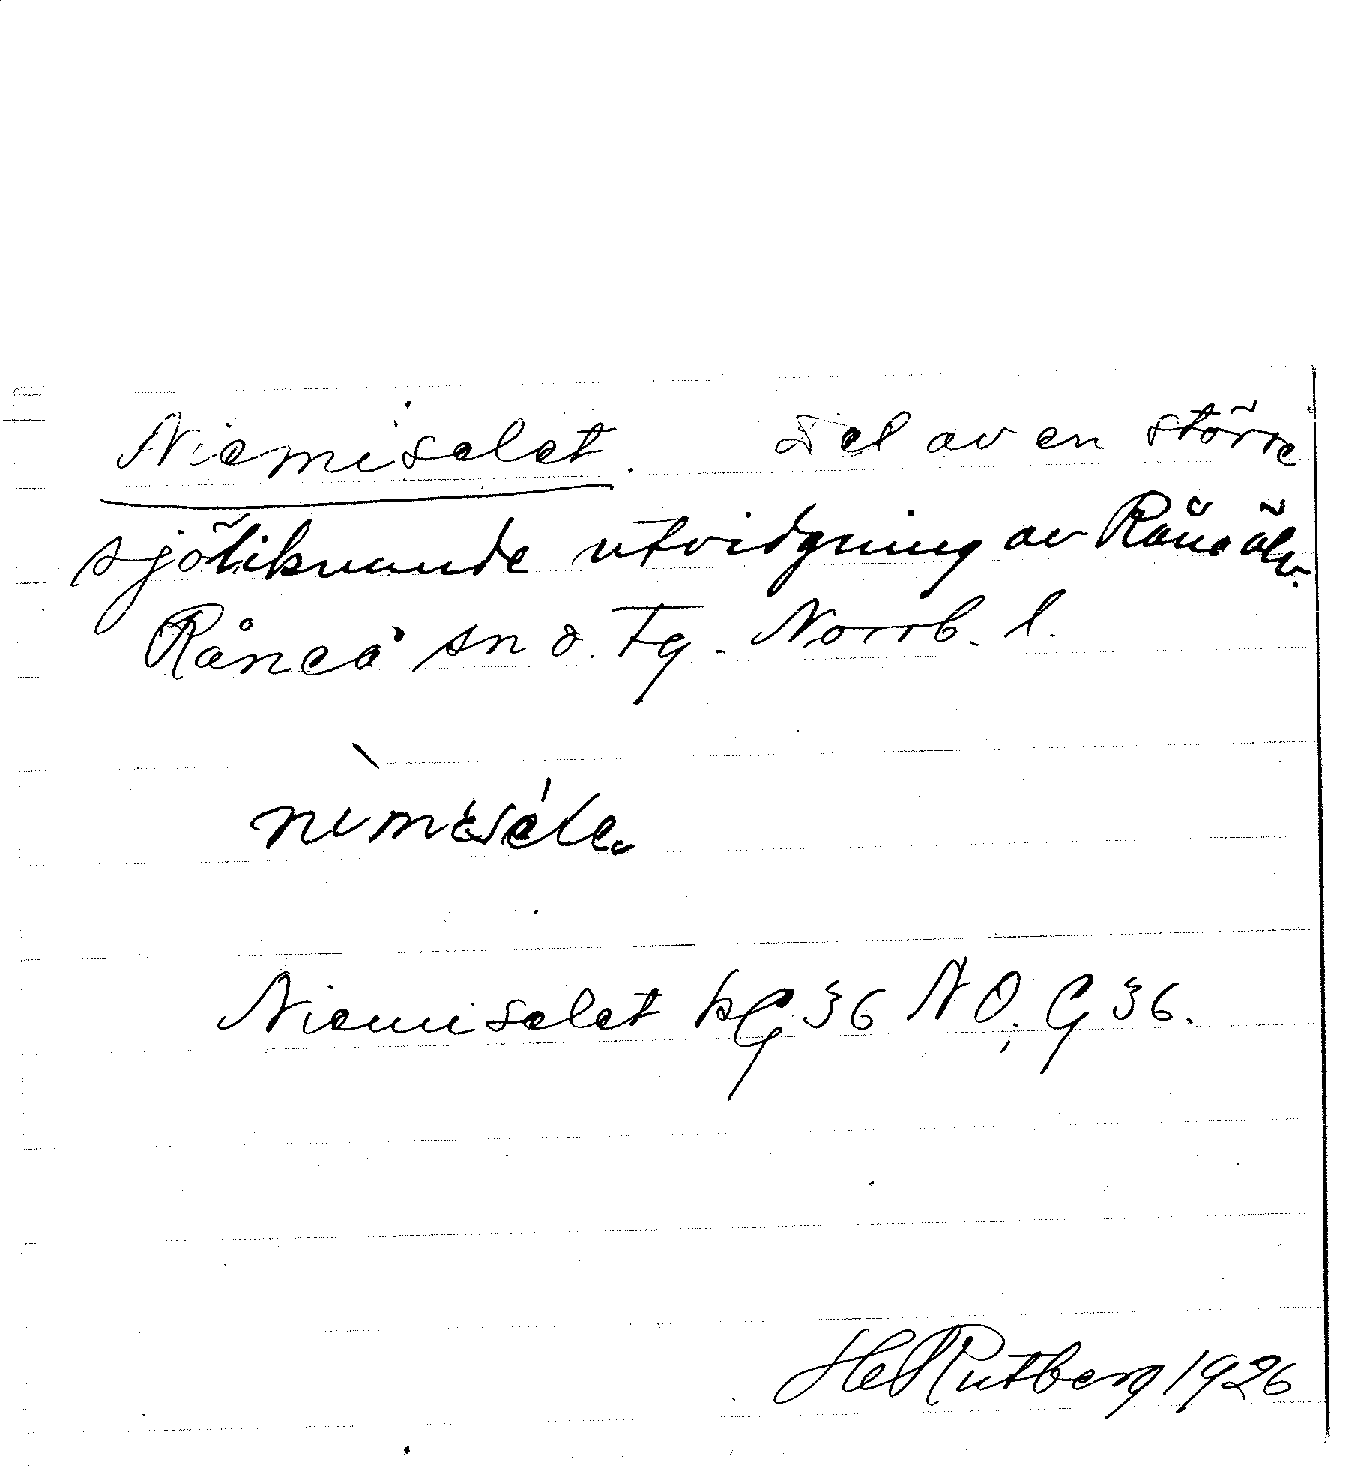 Niemiselet. Del av en större
sjöliknande utvidgning av Råneälv.
Råneå sn o. tg. Norrb. l.
Niemiselet kG 36 NO, G 36.
HelRutberg 1926